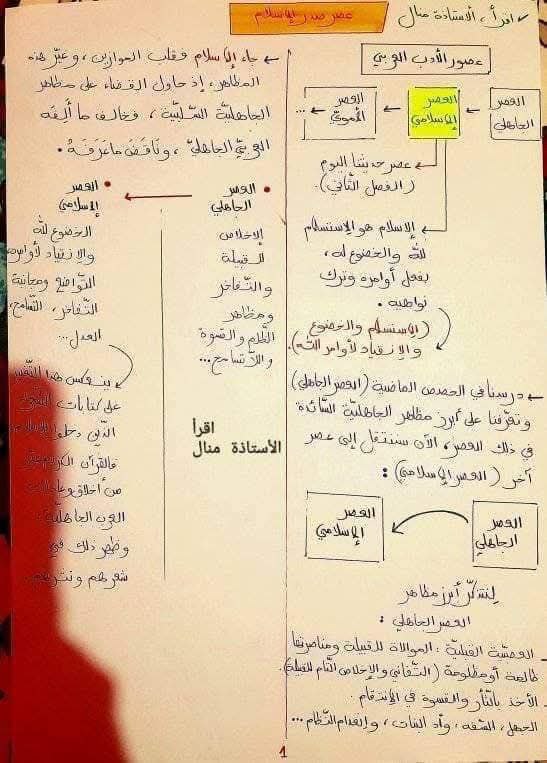 ✓ اقرأ، الأستاذة منال
عصر صدر الإسلام
عصور الأدب العربي
العصر الجاهلي
العصر الإسلامي
العصر الأموي
...
عصر حديثنا اليوم
(الفصل الثاني).
الإسلام هو الاستسلام
لله والخضوع له،
بفعل أوامره وترك
نواهيه.
(الاستسلام والخضوع
والانقياد لأوامر الله).
← درسنا في الحصص الماضية (العصر الجاهلي)
وتعرّفنا على أبرز مظاهر الجاهليّة السّائدة
في ذلك العصر، الآن سننتقل إلى عصر
آخر (العصر الإسلامي):
العصر الجاهلي
العصر الإسلامي
لِنتذكّر أبرز مظاهر
العصر الجاهلي:
- العصبيّة القبليّة: الموالاة للقبيلة ومناصرتها
ظالمة أو مظلومة (التّفاني والإخلاص التّام للقبيلة).
- الأخذ بالثّأر والقسوة في الانتقام.
- الجهل، السّفه، وأد البنات، وانعدام النّظام...
← جاء الإسلام فقلب الموازين، وغيّر هذه
المظاهر، إذ حاول القضاء على مظاهر
الجاهليّة السّلبيّة، فخالف ما ألِفَه
العربيّ الجاهليّ، وناقَضَ ما عَرَفَهُ.
• العصر الجاهلي
الإخلاص
للقبيلة
والتّفاخر
ومظاهر
الظّلم والقسوة
واللّاتسامح...
• العصر الإسلامي
الخضوع لله
والانقياد لأوامره
التّواضع ومجانبة
التّفاخر، التّسامح،
العدل...
ينعكس هذا التّغيّر
على كتابات
الّذين دخلوا الإسلام
فالقرآن الكريم غيّر
من أخلاق
العرب الجاهليّة
وظهر ذلك في
شعرهم ونثرهم
اقرأ
الأستاذة منال
1